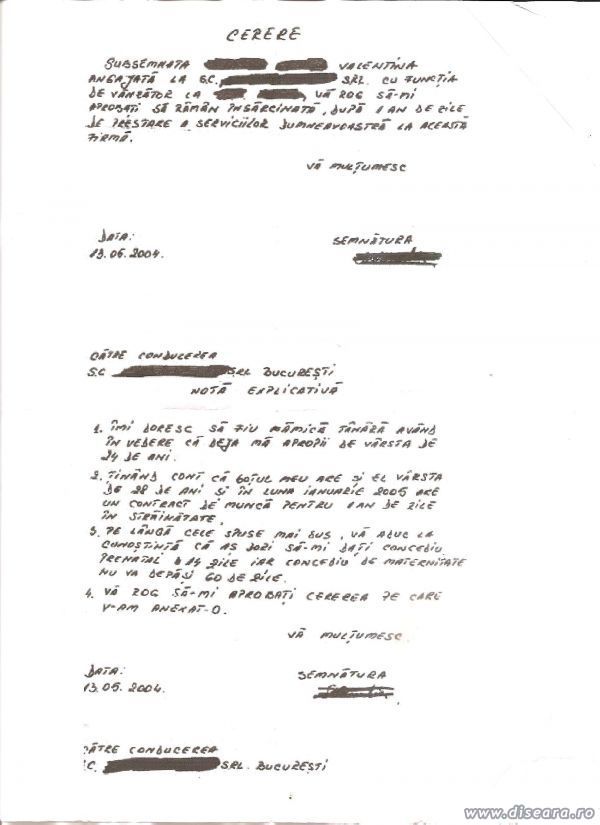 CERERE
SUBSEMNATA VALENTINA
ANGAJATĂ LA S.C. SRL. CU FUNCȚIA
DE VÂNZĂTOR LA , VĂ ROG SĂ-MI
APROBAȚI SĂ RĂMÂN ÎNSĂRCINATĂ, DUPĂ 1 AN DE ZILE
DE PRESTARE A SERVICIILOR DUMNEAVOASTRĂ LA ACEASTĂ
FIRMĂ.
VĂ MULȚUMESC
DATA:
13.05.2004.
SEMNĂTURA
CĂTRE CONDUCEREA
S.C SRL BUCUREȘTI
NOTĂ EXPLICATIVĂ
1. ÎMI DORESC SĂ FIU MĂMICĂ TÂNĂRĂ AVÂND
ÎN VEDERE CĂ DEJA MĂ APROPII DE VÂRSTA DE
24 DE ANI.
2. ȚINÂND CONT CĂ SOȚUL MEU ARE ȘI EL VÂRSTA
DE 28 DE ANI ȘI ÎN LUNA IANUARIE 2005 ARE
UN CONTRACT DE MUNCĂ PENTRU 1 AN DE ZILE
ÎN STRĂINĂTATE.
3. PE LÂNGĂ CELE SPUSE MAI SUS, VĂ ADUC LA
CUNOȘTINȚĂ CĂ AȘ DORI SĂ-MI DAȚI CONCEDIU
PRENATAL 14 ZILE IAR CONCEDIU DE MATERNITATE
NU VA DEPĂȘI 60 DE ZILE.
4. VĂ ROG SĂ-MI APROBAȚI CEREREA PE CARE
V-AM ANEXAT-O.
VĂ MULȚUMESC.
DATA:
13.05.2004.
SEMNĂTURA
CĂTRE CONDUCEREA
S.C. SRL. BUCUREȘTI
www.diseara.ro